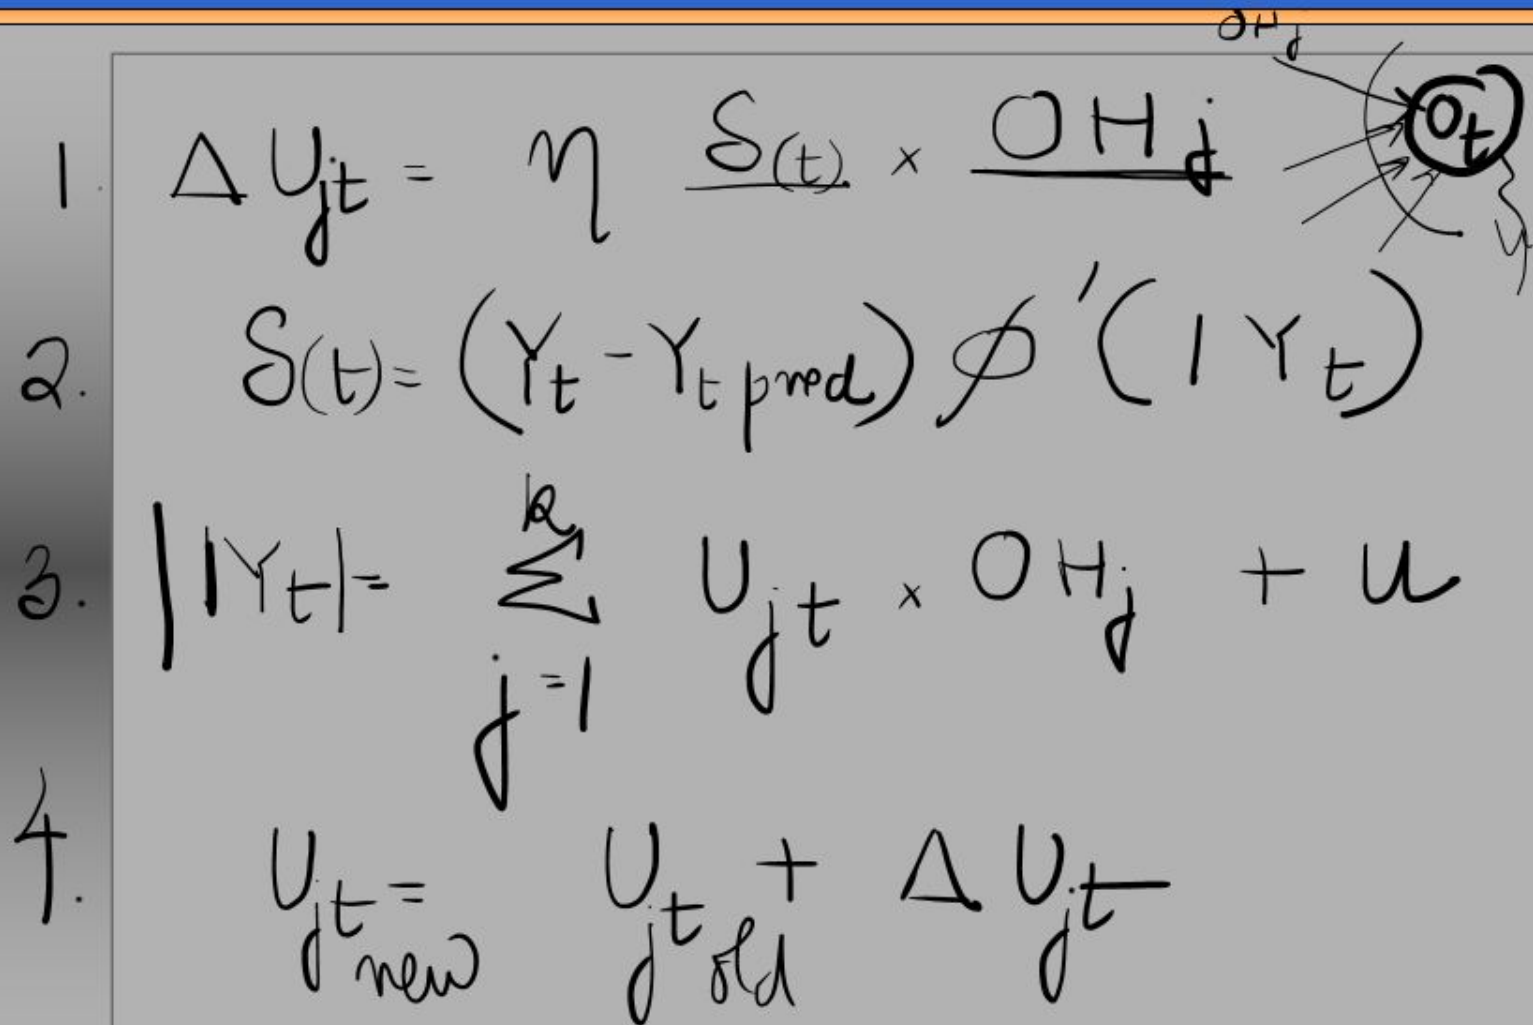 OHj
1. ΔUjt = η δ(t) × OHj
Ot
2. δ(t) = (Yt - Yt pred) ø'(IYt)
3. |IYt| = k Σ j=1 Ujt × OHj + u
4. Ujt new = Ujt old + ΔUjt